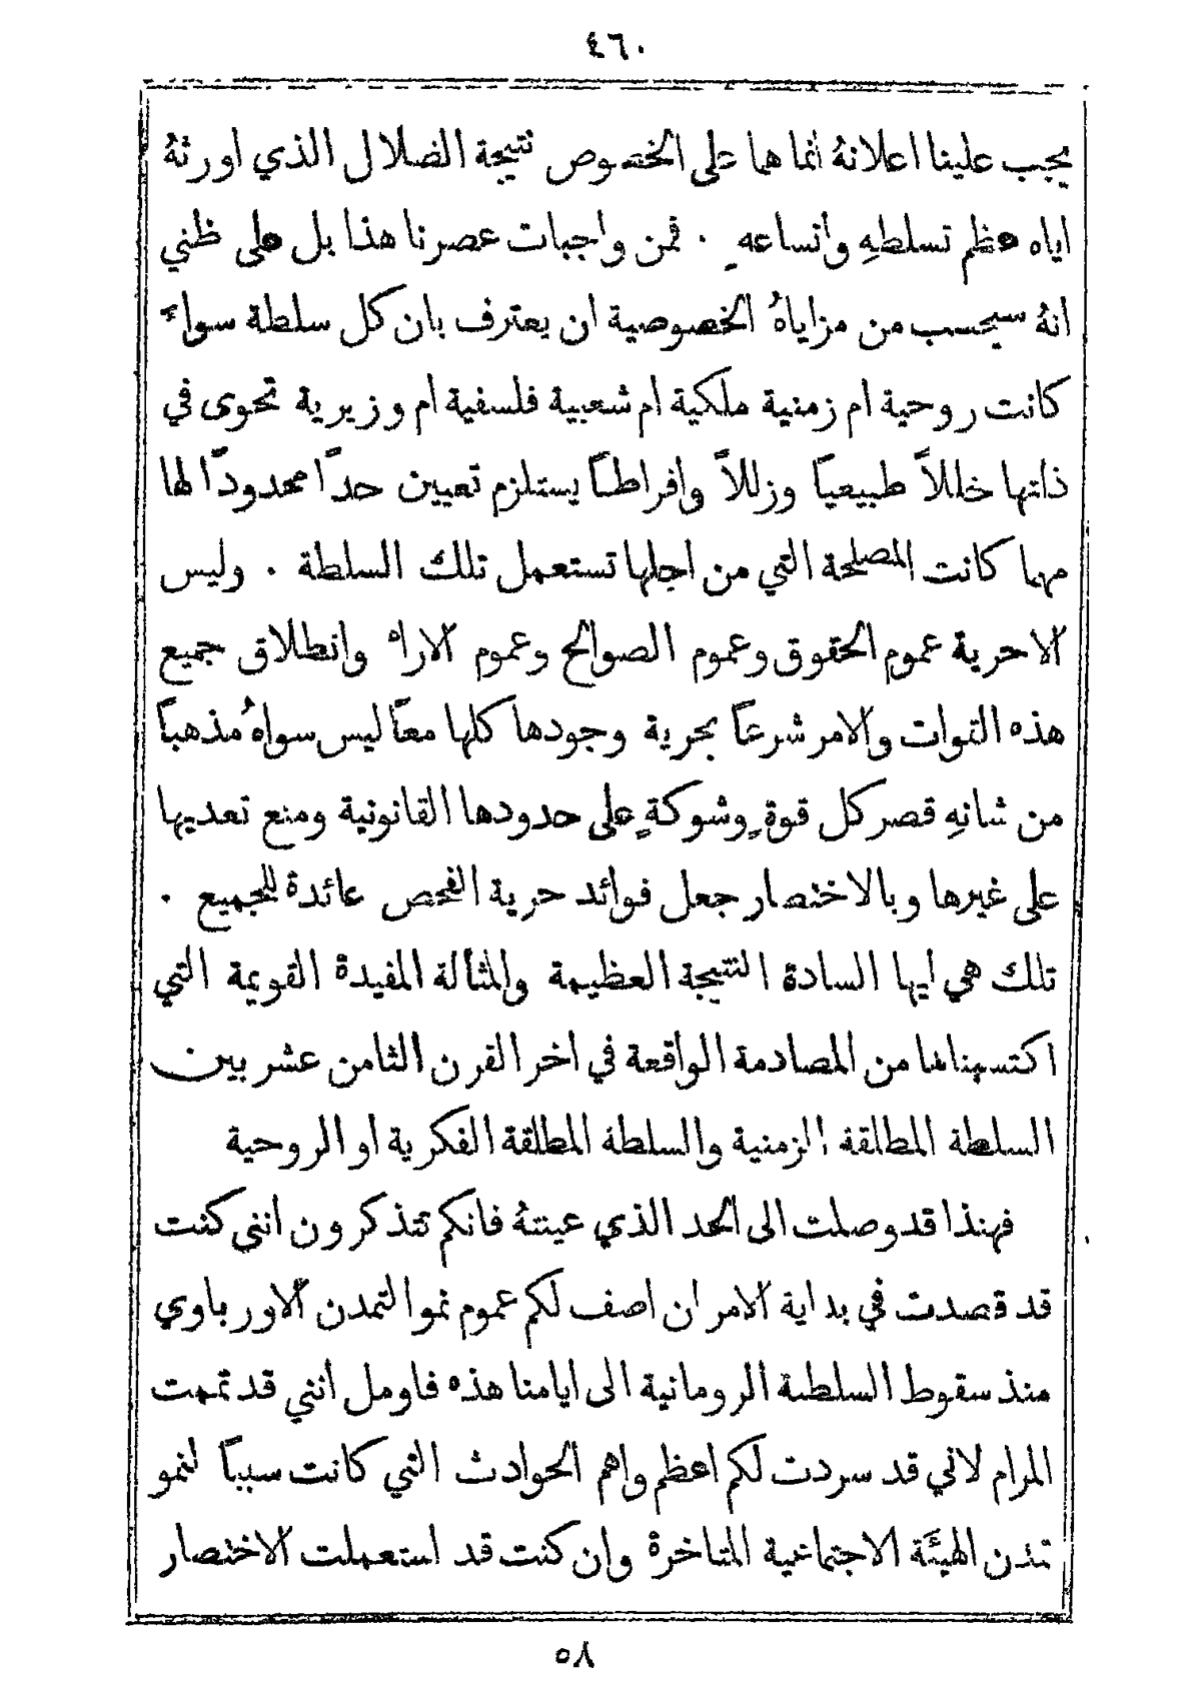 ٤٦٠
يجب علينا اعلانهُ انما هما على الخصوص نتيجة الضلال الذي اورثهُ
اياه عظم تسلطهِ واتساعهِ . فمن واجبات عصرنا هذا بل على ظني
انهُ سيحسب من مزاياهُ الخصوصية ان يعترف بان كل سلطة سواءً
كانت روحية ام زمنية ملكية ام شعبية فلسفية ام وزيرية تحوى في
ذاتها خللاً طبيعياً وزللاً وافراطاً يستلزم تعيين حدًا محدودًا لها
مهما كانت المصلحة التي من اجلها تستعمل تلك السلطة . وليس
الا حرية عموم الحقوق وعموم الصوالح وعموم الاراء وانطلاق جميع
هذه القوات والامر شرعاً بحرية وجودها كلها معاً ليس سواهُ مذهباً
من شانهِ قصر كل قوةٍ وشوكةٍ على حدودها القانونية ومنع تعديها
على غيرها وبالاختصار جعل فوائد حرية الفحص عائدة للجميع .
تلك هي ايها السادة النتيجة العظيمة والمثألة المفيدة القويمة التي
اكتسبناها من المصادمة الواقعة في اخر القرن الثامن عشر بين
السلطة المطلقة الزمنية والسلطة المطلقة الفكرية او الروحية
فهنذا قد وصلت الى الحد الذي عينتهُ فانكم تتذكرون انني كنت
قد قصدت في بداية الامر ان اصف لكم عموم نمو التمدن الاورباوي
منذ سقوط السلطة الرومانية الى ايامنا هذه فاومل انني قد تممت
المرام لاني قد سردت لكم اعظم واهم الحوادث التي كانت سبباً لنمو
تمدن الهيئَة الاجتماعية المتاخرة وان كنت قد استعملت الاختصار
٥٨